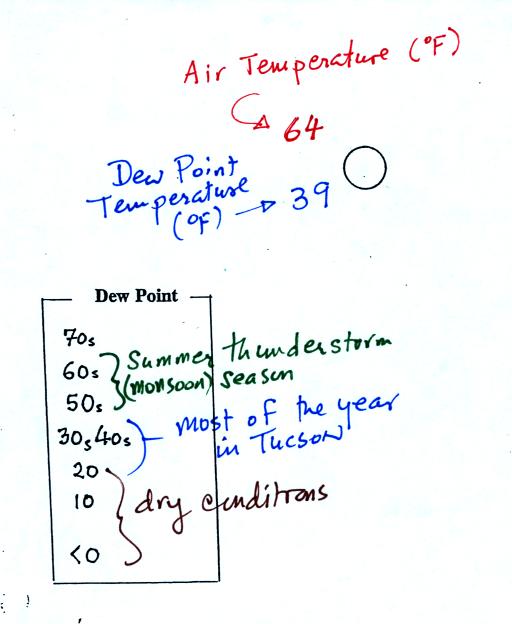 Air Temperature (°F)
64
Dew Point
Temperature
(°F)
39
Dew Point
70s
60s
50s
Summer thunderstorm
(monsoon) season
30s 40s
most of the year
in Tucson
20
10
<0
dry conditions